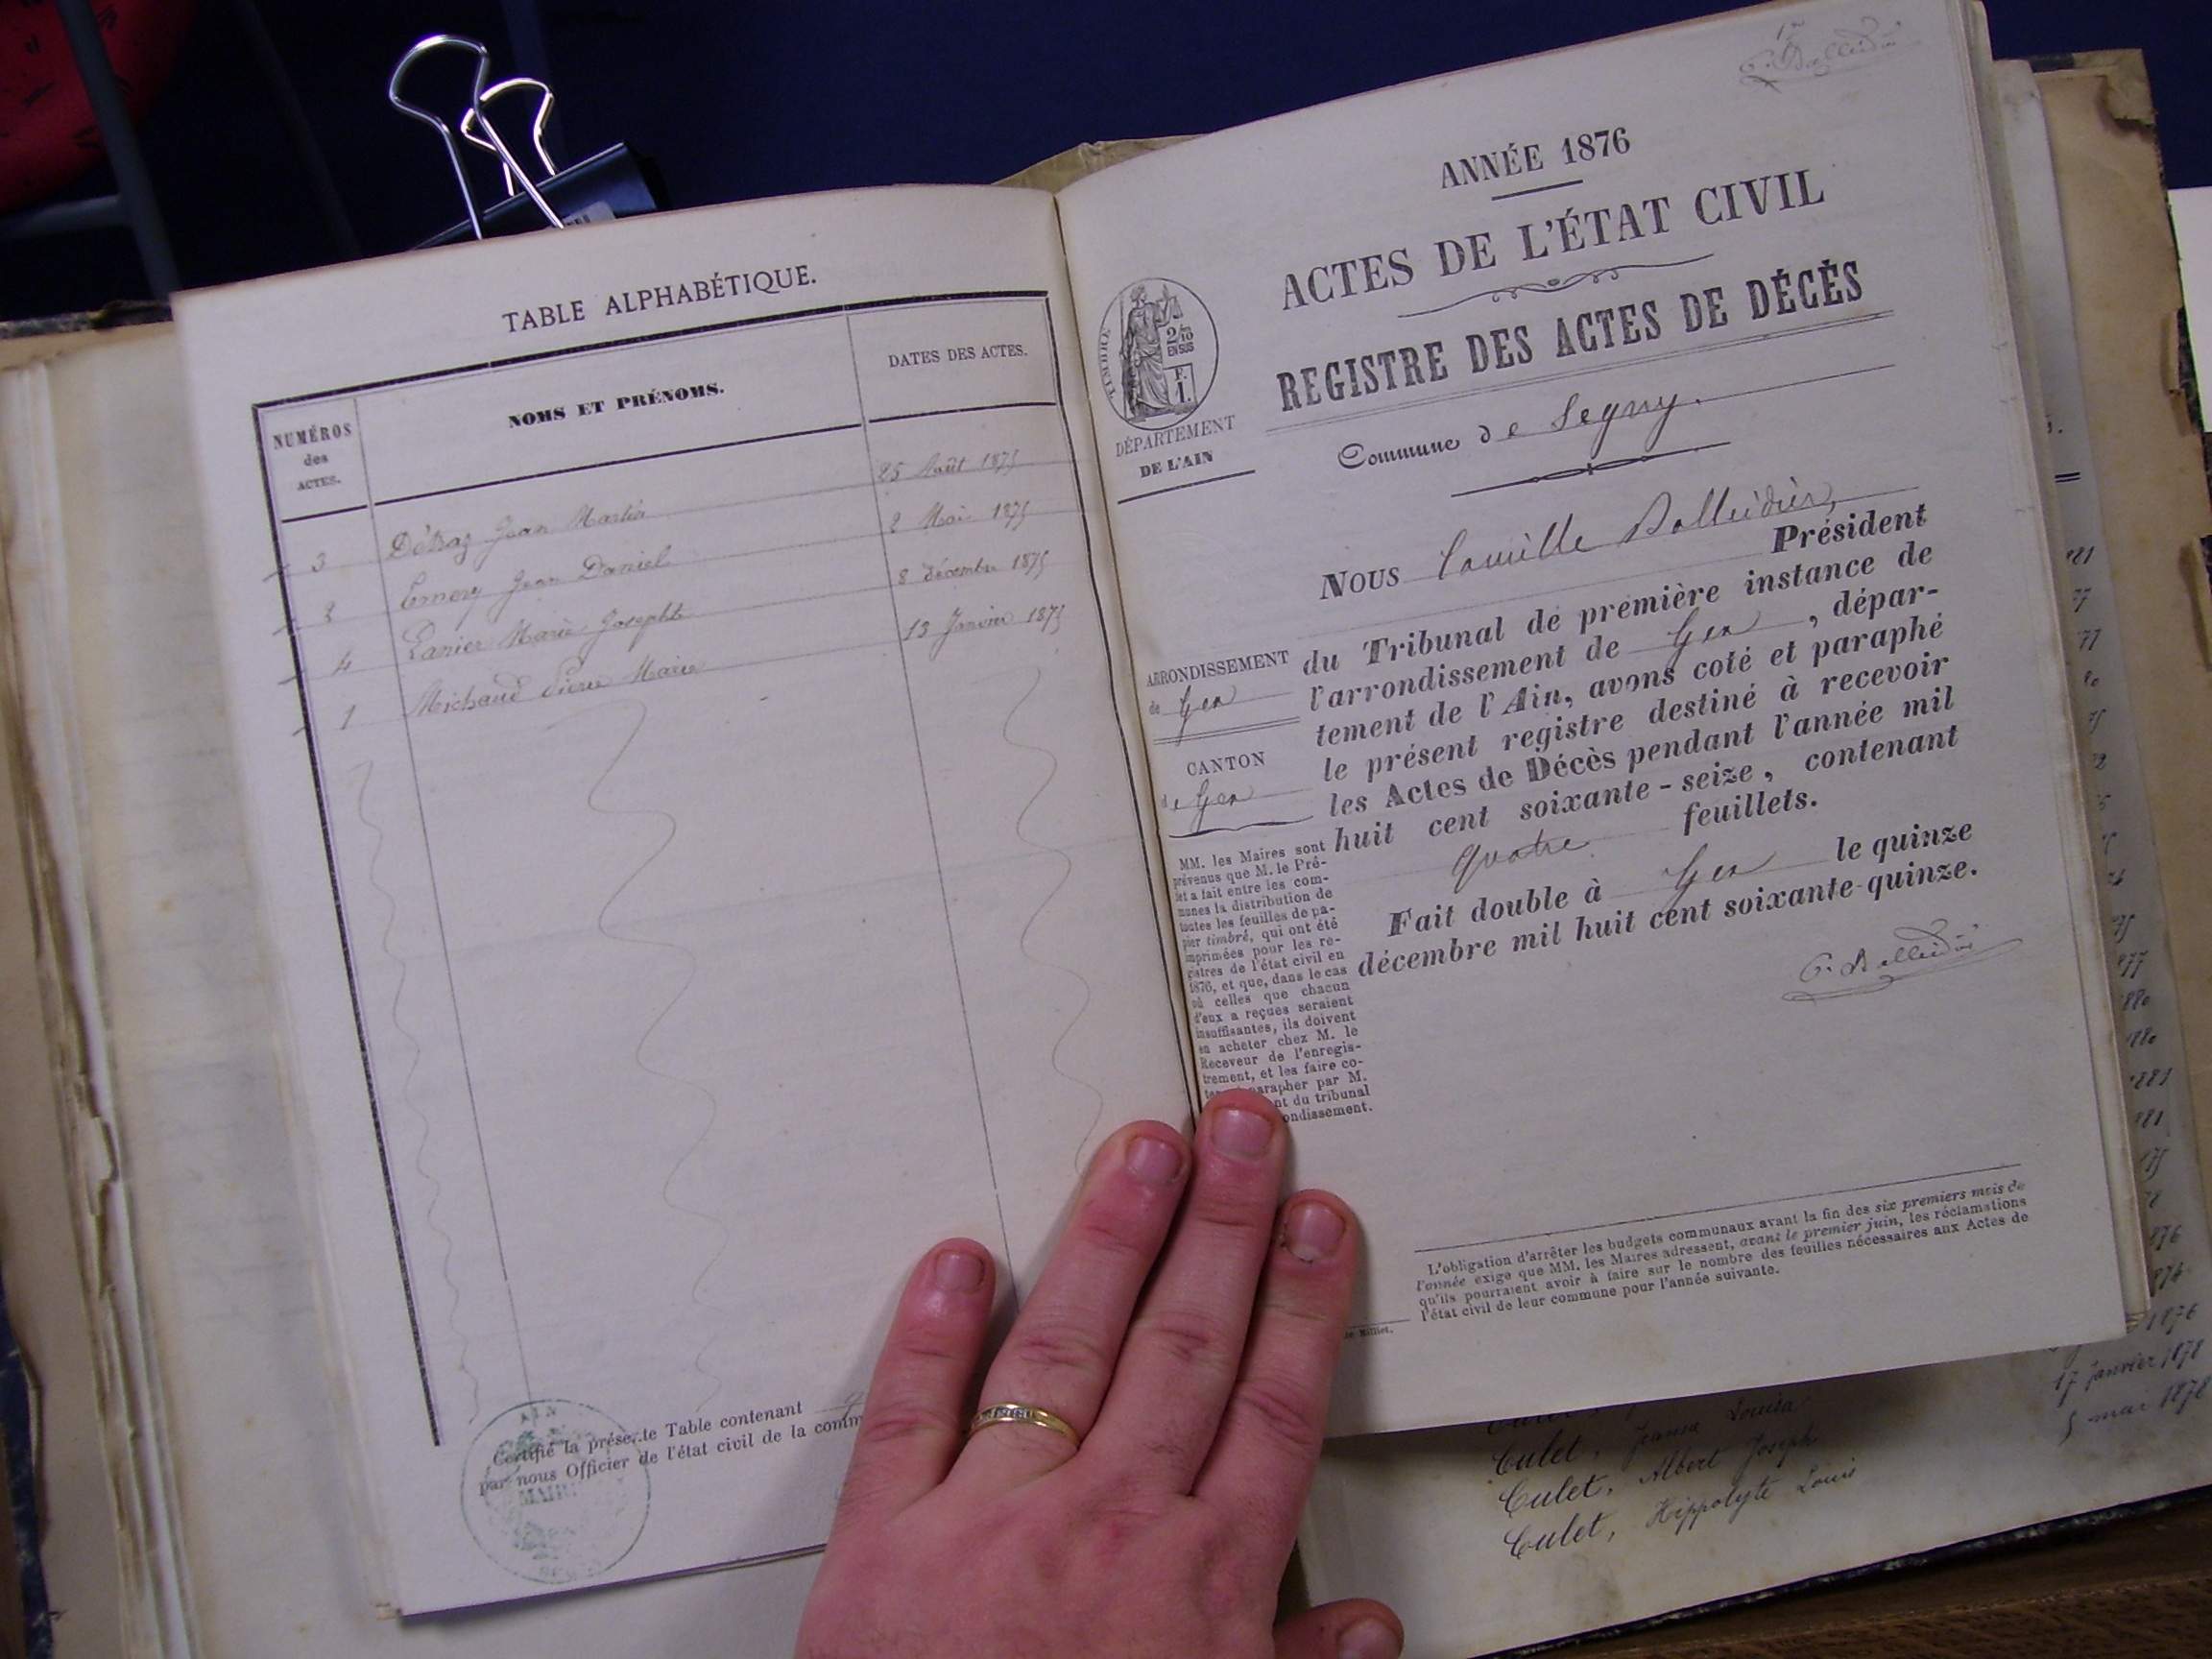 TABLE ALPHABÉTIQUE.
NUMÉROS
des
ACTES.
NOMS ET PRÉNOMS.
DATES DES ACTES.
3 Détraz Jean Martin 25 Août 1875
2 Emery Jean Daniel 2 Mai 1875
4 Lanier Marie Josephte 8 décembre 1875
1 Michaud Pierre Marie 13 Janvier 1875
Certifié la présente Table contenant
par nous Officier de l'état civil de la comm
AIN
MAIRIE
1er
C. Balleidier
ANNÉE 1876
ACTES DE L'ÉTAT CIVIL
REGISTRE DES ACTES DE DÉCÈS
Commune de Segny.
TIMBRE
2/10
EN SUS
F.
1.
DÉPARTEMENT
DE L'AIN
ARRONDISSEMENT
de Gex
CANTON
de Gex
MM. les Maires sont
prévenus que M. le Pré-
fet a fait entre les com-
munes la distribution de
toutes les feuilles de pa-
pier timbré, qui ont été
imprimées pour les re-
gistres de l'état civil en
1876, et que, dans le cas
où celles que chacun
d'eux a reçues seraient
insuffisantes, ils doivent
en acheter chez M. le
Receveur de l'enregis-
trement, et les faire co-
parapher par M.
nt du tribunal
ondissement.
NOUS Camille Balleidier,
Président
du Tribunal de première instance de
l'arrondissement de Gex, dépar-
tement de l'Ain, avons coté et paraphé
le présent registre destiné à recevoir
les Actes de Décès pendant l'année mil
huit cent soixante-seize, contenant
quatre feuillets.
Fait double à Gex le quinze
décembre mil huit cent soixante-quinze.
C. Balleidier
L'obligation d'arrêter les budgets communaux avant la fin des six premiers mois de
l'année exige que MM. les Maires adressent, avant le premier juin, les réclamations
qu'ils pourraient avoir à faire sur le nombre des feuilles nécessaires aux Actes de
l'état civil de leur commune pour l'année suivante.
Milliet.
1876
17 janvier 1878
5 mai 1878
Culet, Jeanne Louisa
Culet, Albert Joseph
Culet, Hippolyte Louis